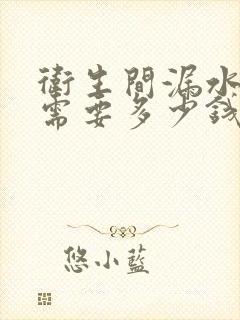 衛生間漏水
需要多少錢
悠小藍